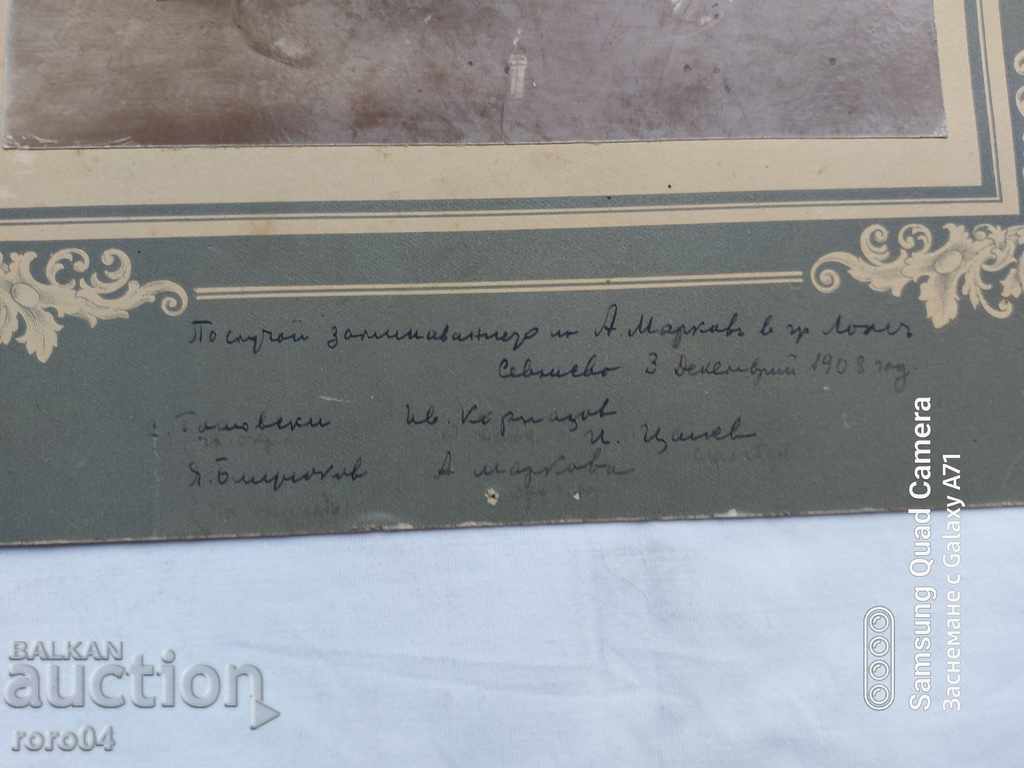 По случай заминаванието на А. Марковъ в гр. Ломъ
Севлиево 3 Декемврий 1908 год.
Ив. Карпазов
И. Цанев
А Маркова
Samsung Quad Camera
Заснемане с Galaxy A71
BALKAN
auction
roro04